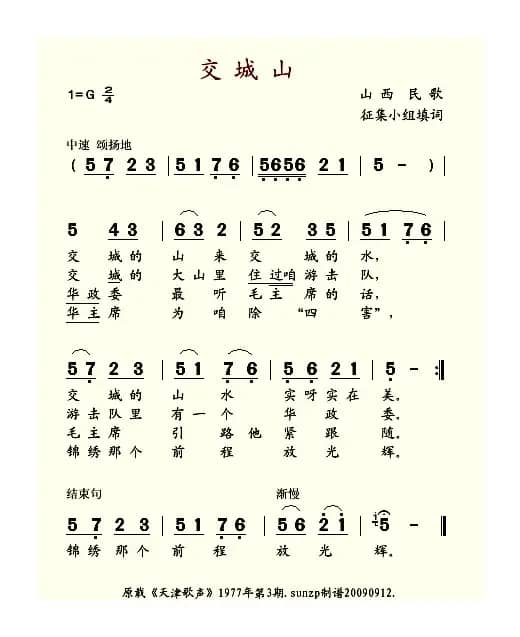 交城山
1=G 2/4
山西民歌
征集小组填词
中速 颂扬地
( 5 7 2 3 | 5 1 7 6 | 5656 2 1 | 5 - ) |
5 4 3 | 6 3 2 | 5 2 3 5 | 5 1 7 6 |
交 城的 山 来 交 城的 水,
交 城的 大山里 住过咱游击队,
华政委 最 听 毛主 席的 话,
华主席 为 咱 除 “四 害”,
5 7 2 3 | 5 1 7 6 | 5 6 2 1 | 5 - :||
交 城的 山 水 实呀实在 美。
游击队里 有一个 华 政 委。
毛主席 引 路他 紧 跟 随。
锦绣那个 前 程 放光 辉。
结束句 渐慢
5 7 2 3 | 5 1 7 6 | 5 6 2 1 | 5 - ||
锦绣那个 前 程 放 光 辉。
原载《天津歌声》1977年第3期. sunzp制谱20090912.